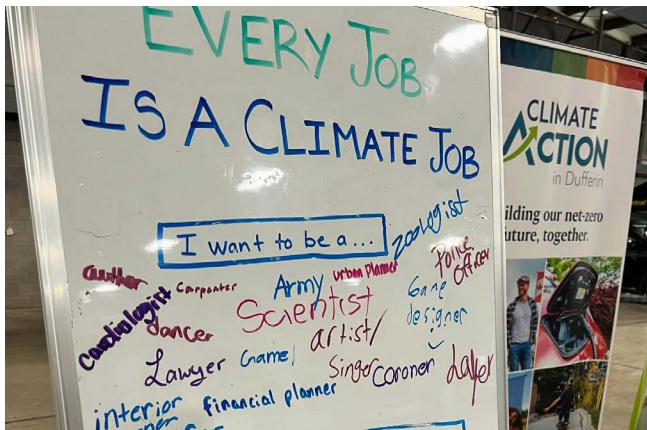 EVERY JOB
IS A CLIMATE JOB
I want to be a...
zoologist
author
Carpenter
Army
urban Planner
Police
Officer
cardiologist
Scientist
Game
designer
dancer
artist/
Singer
Lawyer
Game/
coroner
interior
financial planner
CLIMATE
ACTION
in Dufferin
ilding our net-zero
uture, together.